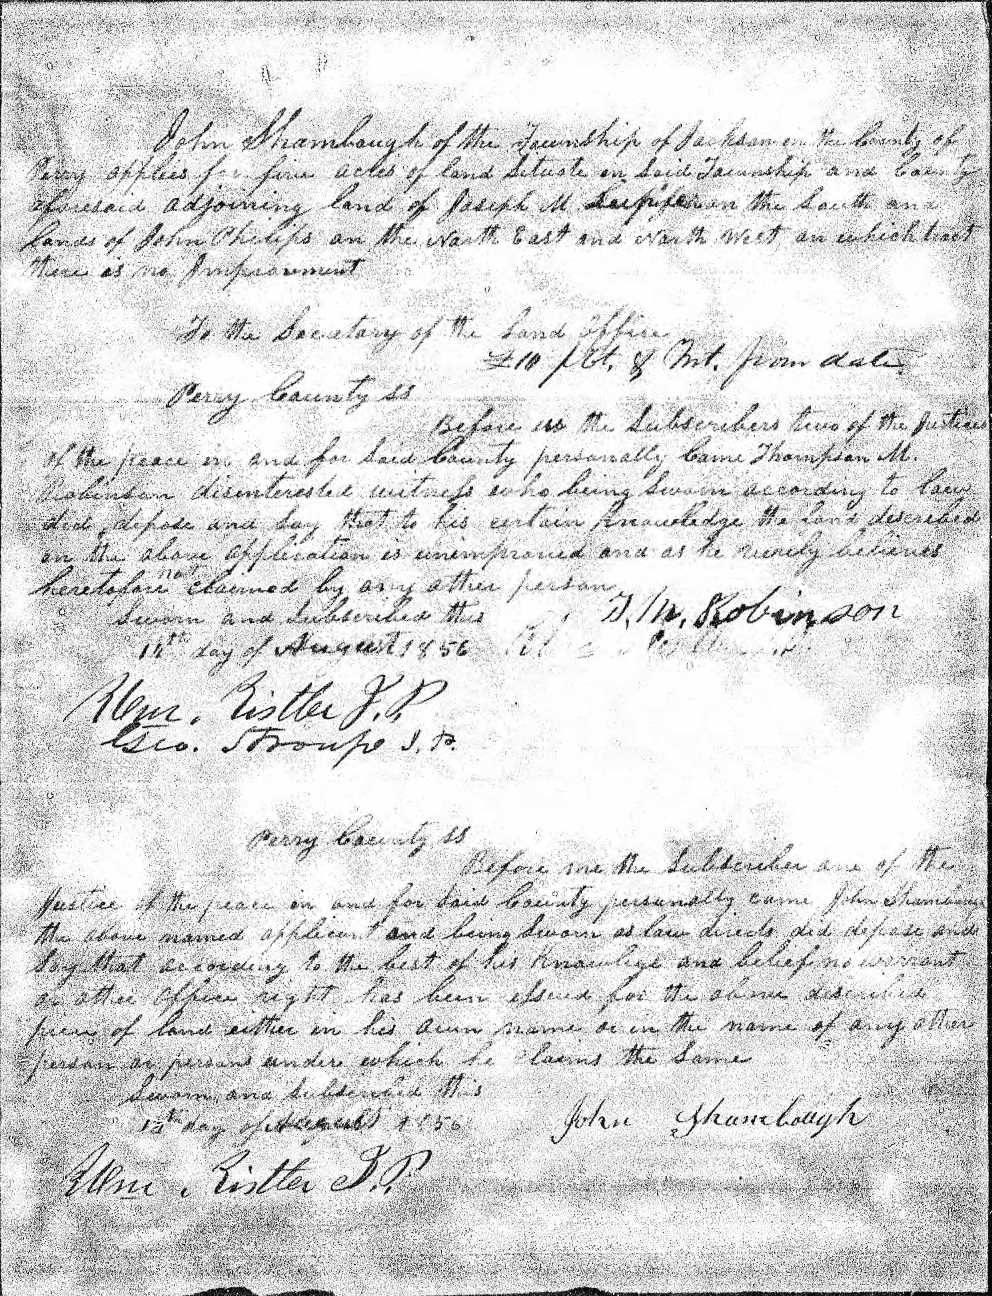 John Shambaugh of the Township of Jackson on the County of
Perry applies for five acres of land Situate in Said Township and County
aforesaid adjoining land of Joseph M. on the South and
lands of John Phelips on the North East and North West on which tract
there is no Improvement
To the Secratary of the Land Office
£10 p Ct. & Int. from date.
Perry County ss
Before us the Subscribers two of the Justices
of the peace in and for Said County personally Came Thompson M.
Robinson disenterested witness who being Sworn according to law
did depose and Say that to his certain knowledge the land described
in the above application is unimproved and as he verily believes
heretofore not claimed by any other person
Sworn and Subscribed this
day of August 1856
T. M. Robinson
Wm. Kistler J. P.
Geo. Stroupe J. P.
Perry County ss
Before me the Subscriber one of the
Justice of the peace in and for Said County personally came John Shambaugh
the above named applicant and being Sworn as law directs did depose and
Say that according to the best of his Knowlege and belief no warrant
or other Office right has been issued for the above described
piece of land either in his own name or in the name of any other
person or persons undere which he claims the Same
Sworn and Subscribed this
day of August 1856
John Shambough
Wm. Kistler J. P.